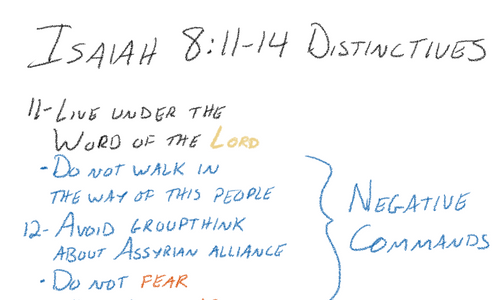 Isaiah 8:11-14 Distinctives
11- Live under the
Word of the Lord
- Do not walk in
the way of this people
12- Avoid groupthink
about Assyrian alliance
- Do not fear
Negative
Commands